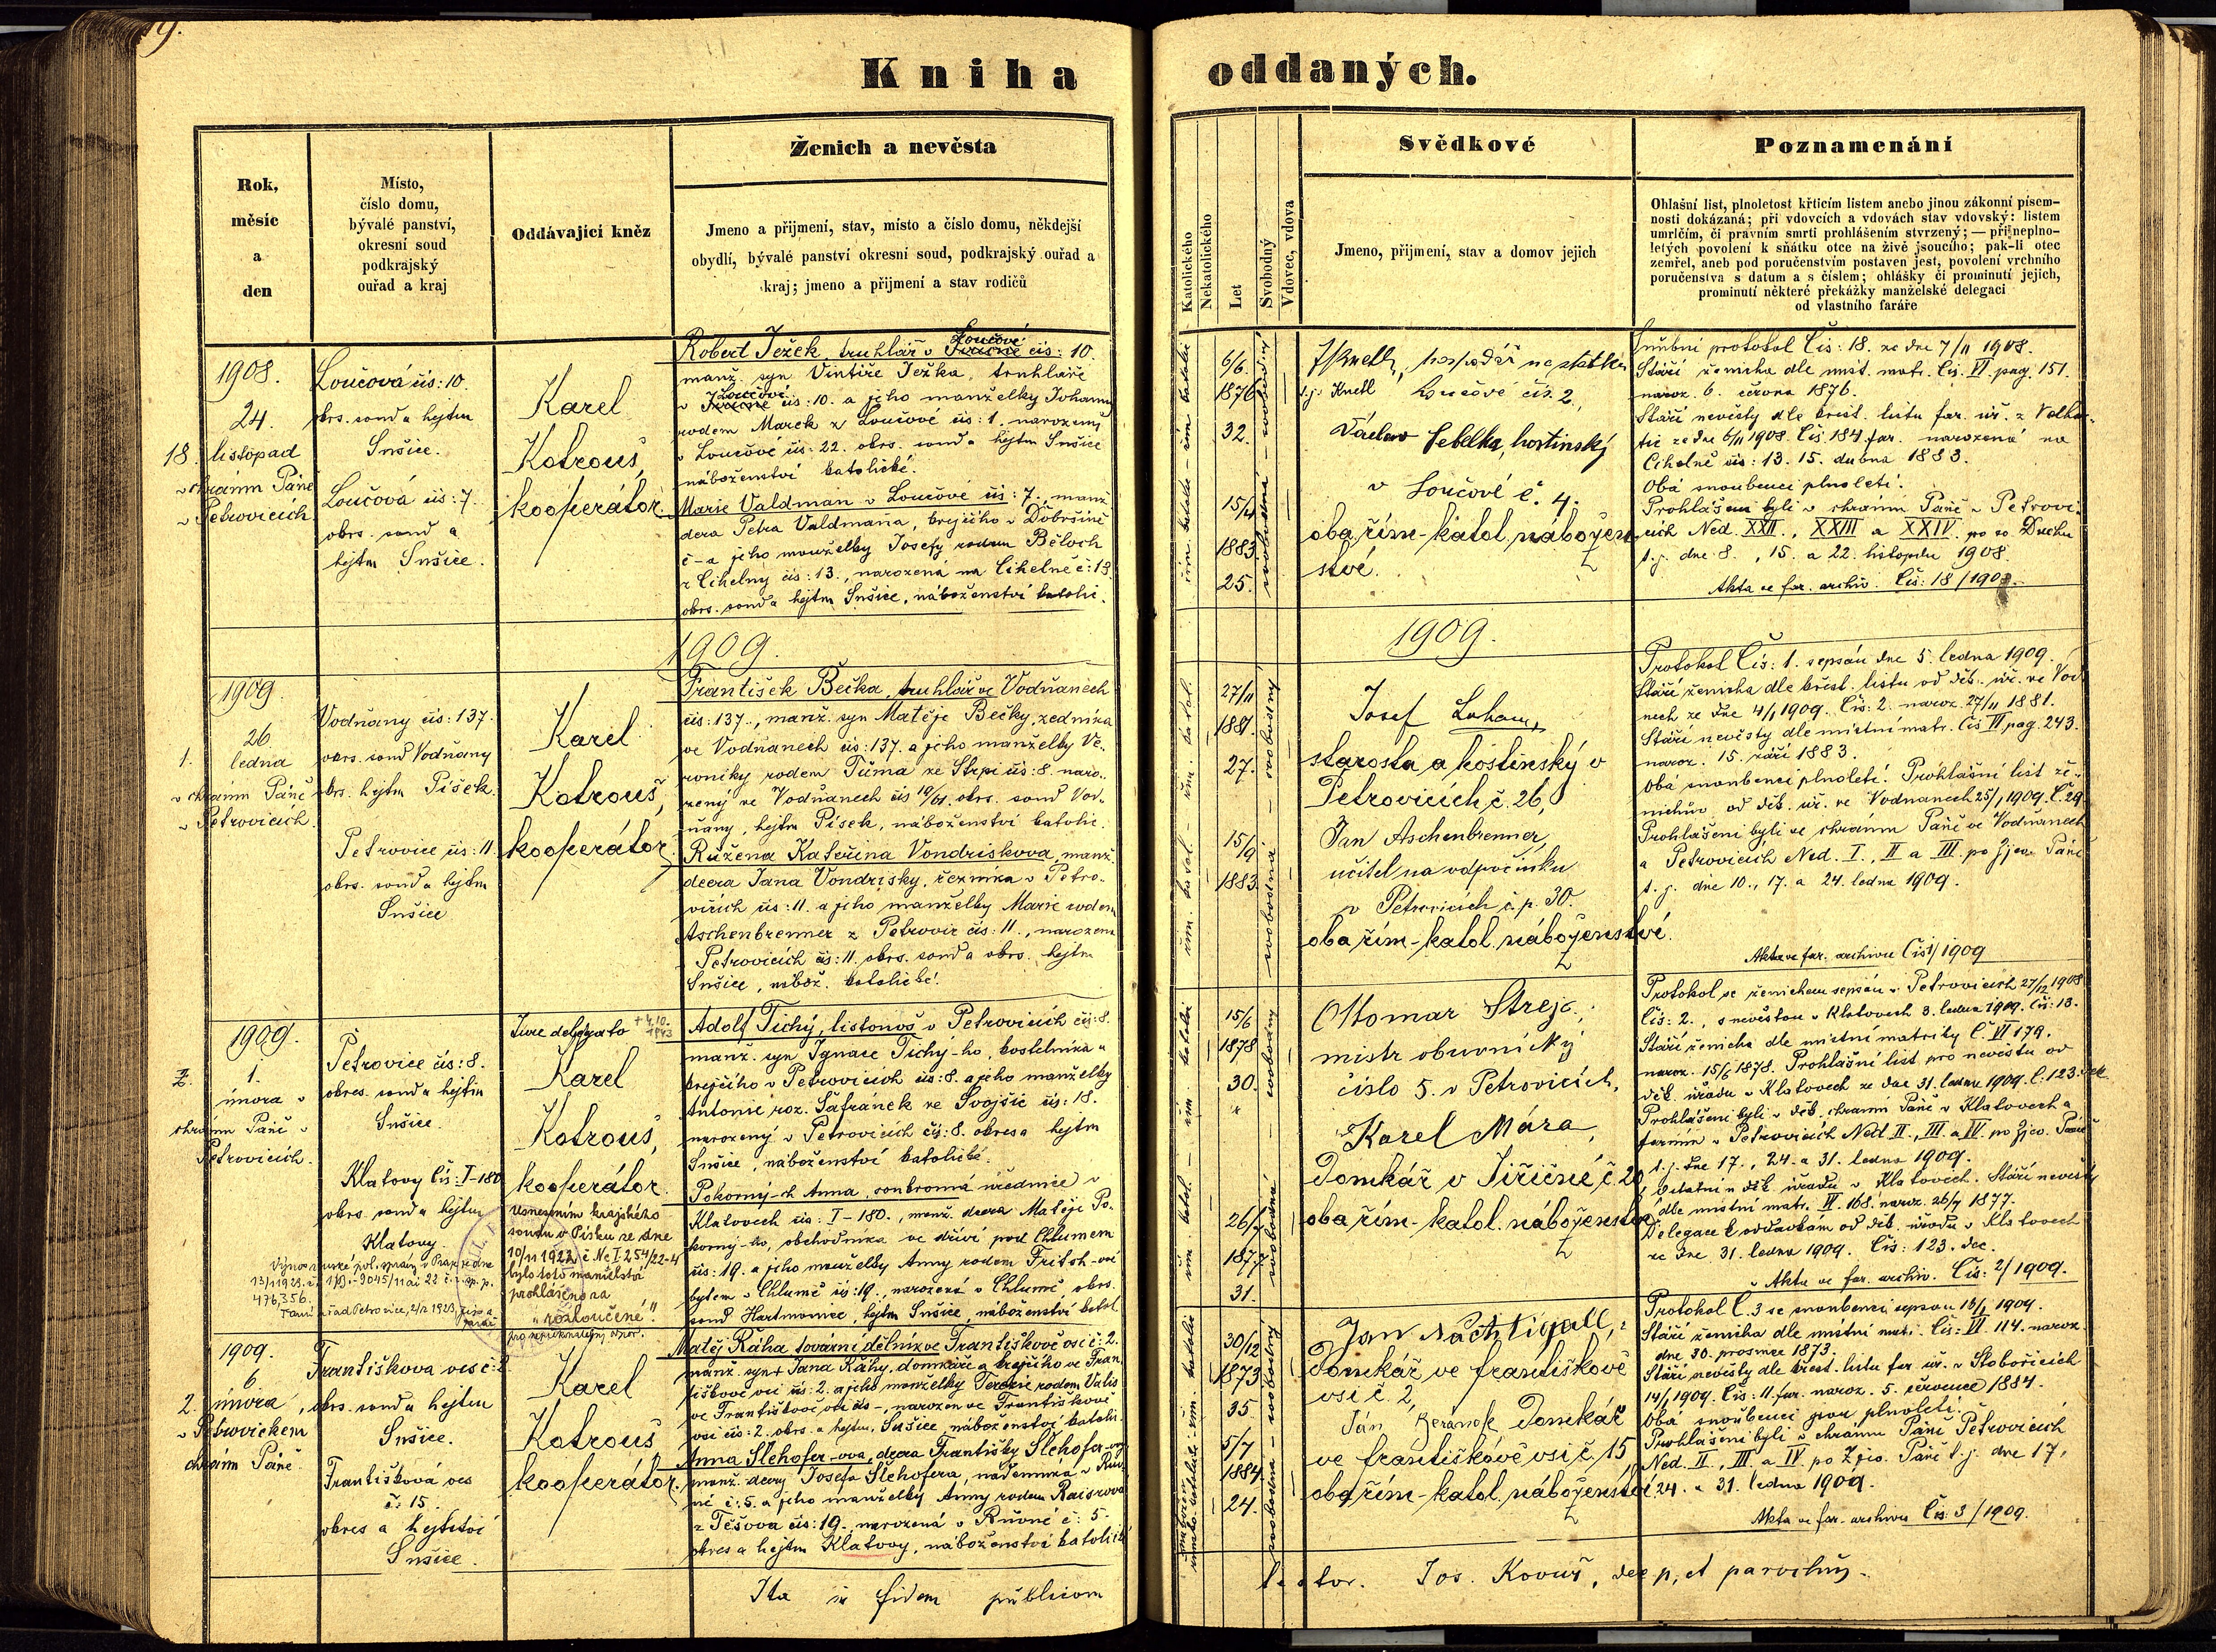 Kniha oddaných.
Rok,
měsíc
a
den
Místo,
číslo domu,
bývalé panství,
okresní soud
podkrajský
ouřad a kraj
Oddávající kněz
Ženich a nevěsta
Jmeno a přijmení, stav, místo a číslo domu, někdejší
obydlí, bývalé panství okresní soud, podkrajský ouřad a
kraj; jmeno a přijmení a stav rodičů
Katolického
Nekatolického
Let
Svobodný
Vdovec, vdova
Svědkové
Jmeno, přijmení, stav a domov jejich
Poznamenání
Ohlašní list, plnoletost křticím listem anebo jinou zákonní písem-
nosti dokázaná; při vdovcích a vdovách stav vdovský: listem
umrlčím, či právním smrti prohlášením stvrzený; — při neplno-
letých povolení k sňátku otce na živě jsoucího; pak-li otec
zemřel, aneb pod poručenstvím postaven jest, povolení vrchního
poručenstva s datum a s číslem; ohlášky či prominutí jejich,
prominutí některé překážky manželské delegací
od vlastního faráře
1908.
24.
18. listopad
v chrámu Páně
v Petrovicích
Loučová čís: 10.
okrs. soud a hejtm
Sušice.
Loučová čís: 7.
okrs. soud a
hejtm Sušice.
Karel
Kotrouš,
kooperátor.
Robert Ježek, truhlář v Loučové čís: 10.
manž. syn Vintíře Ježka, truhláře
v Loučové čís: 10. a jeho manželky Johanny
rodem Marek z Loučové čís: 1. narozený
v Loučové čís: 22. okrs. soud a hejtm Sušice
náboženství katolické.
Marie Valdman v Loučové čís: 7., manž.
dcera Petra Valdmana, krejčího v
č - a jeho manželky Josefy rodem
z Cihelny čís: 13., narozená na Cihelně č: 13.
okrs. soud a hejtm Sušice, náboženství katolic.
6/6.
1876
32.
15/4
1883
25.
hospodář na statku
t.j. Knetl Loučové čís. 2,
Václav Sebelka, hostinský
v Loučové č. 4.
oba řím-katol. nábožen
stvé.
Snubní protokol Čís: 18. ze dne 7/11 1908.
Stáří ženicha dle míst. matr. Čís. VI. pag. 151.
naroz. 6. června 1876.
Stáří nevěsty dle křest. listu far. úř. z
ze dne 6/11 1908. Čís. 184 far. narozená na
Cihelně čís: 13. 15. dubna 1883.
Oba snoubenci plnoletí.
Prohlášeni byli v chrámu Páně v Petrovi-
cích Ned. XXII., XXIII a XXIV. po sv. Duchu
t.j. dne 8., 15. a 22. listopadu 1908.
Akta ve far. archiv. Čís: 18/1908.
1909.
1909.
1909.
26
1. ledna
v chrámu Páně
v Petrovicích.
Vodňany čís: 137.
okrs. soud Vodňany
okrs. hejtm Písek.
Petrovice čís: 11.
okrs. soud a hejtm
Sušice
Karel
Kotrouš,
kooperátor
František Bečka, truhlář ve Vodňanech
čís: 137., manž. syn Matěje Bečky, zedníka
ve Vodňanech čís: 137. a jeho manželky Ve-
roniky rodem Tůma ze Strpí čís: 8. naro-
zený ve Vodňanech čís okrs. soud Vod-
ňany, hejtm Písek, náboženství katolic.
Růžena Kateřina Vondriskova, manž.
dcera Jana Vondrisky, řezníka v Petro-
vicích čís: 11. a jeho manželky Marie rodem
Aschenbrenner z Petrovic čís: 11., narozena
Petrovicích čís: 11. okrs. soud a okrs. hejtm
Sušice, nábož. katolické.
27/11
1881.
27.
15/9
1883
Josef
starosta a hostinský v
Petrovicích č. 26,
Jan Aschenbrenner,
učitel na odpočinku
v Petrovicích č.p. 30.
oba řím-katol. náboženství.
Protokol Čís: 1. sepsán dne 5. ledna 1909.
Stáří ženicha dle křest. listu od děk. úř. ve Vod-
nech ze dne 4/1 1909. Čís: 2. naroz. 27/11 1881.
Stáří nevěsty dle místní matr. Čís VI pag. 243.
naroz. 15. září 1883.
Oba snoubenci plnoletí. Prohlášní list že-
nichův od děk. úř. ve Vodnanech 25/1 1909. Č. 29.
Prohlášeni byli ve chrámu Páně ve Vodnanech
a Petrovicích Ned. I., II a III. po Zjev. Páně
t.j. dne 10., 17. a 24. ledna 1909.
Akta ve far. archivu Čís 1/1909
1909.
2. 1.
února v
chrámu Páně v
Petrovicích.
Petrovice čís: 8.
okres. soud a hejtm
Sušice.
Klatovy Čís: I-180
okrs. soud a hejtm
Klatovy.
Jure delegato
Karel
Kotrouš,
kooperátor.
Usnesením krajského
soudu v Písku ze dne
10/11 1922, č Nc I 254/22-4
bylo toto manželství
prohlášeno za
"rozloučené".
13/1 1923
476,356.
+ 4.10.
1943
Adolf Tichý, listonoš v Petrovicích čís: 8.
manž. syn Ignace Tichý-ho, kostelníka a
krejčího v Petrovicích čís: 8. a jeho manželky
Antonie roz. Šafránek ze Svojšic čís: 18.
narozený v Petrovicích čís: 8. okres a hejtm
Sušice, náboženství katolické.
Pokorný-ch Anna, soukromá úřednice v
Klatovech čís: I-180., manž. dcera Matěje Po-
korný-ho, obchodníka se dřívím pod Chlumem
čís: 19. a jeho manželky Anny rodem Fritsh-ové
bytem v Chlumě čís: 19., narozená v Chlumě, okrs.
soud Hartmanice, hejtm Sušice, náboženství katol.
15/6
1878
30.
26/7
1877
31.
Ottomar Strejc.,
mistr obuvnický
číslo 5. v Petrovicích,
Karel Mára,
Domkář v Jiřičné, č. 20
oba řím-katol. náboženství
Protokol se ženichem sepsán v Petrovicích 27/12 1908
Čís: 2., s nevěstou v Klatovech 3. ledna 1909. Čís: 13.
Stáří ženicha dle místní matriky Č. VI 179.
naroz. 15/6 1878. Prohlášní list pro nevěstu od
děk. úřadu v Klatovech ze dne 31. ledna 1909. Č: 123. dek
Prohlášeni byli v děk. chrámu Páně v Klatovech a
farním v Petrovicích Ned. II., III. a IV. po Zjev. Páně
t.j. dne 17., 24. a 31. ledna 1909.
děk úřadu v Klatovech. Stáří nevěsty
dle místní matr. 168. naroz. 26/7 1877.
Delegace k oddavkám od děk. úřadu v Klatovech
ze dne 31. ledna 1909. Čís: 123. dec.
Akta ve far. archiv. Čís: 2/1909.
1909.
6
2. února,
v Petrovickem
chrámu Páně.
Františkova ves č: 2
okrs. soud a hejtm
Sušice.
Františková ves
č: 15.
okres a hejtství
Sušice.
Karel
Kotrouš
kooperátor.
Matěj Ráha tovární dělník ve Františkově vsi č: 2.
manž. syn + Jana Ráhy, domkáře a krejčího ve Fran-
tiškově vsi čís: 2. a jeho manželky Terezie rodem
ve Františkově vsi čís -, narozen ve Františkově
vsi čís: 2. okrs. a hejtm. Sušice náboženství katolic.
Anna Slehofer-ova, dcera Františky Slehofer-ovy
manž. dcery Josefa Slehofera, nádenníka v
č: 5. a jeho manželky Anny rodem Raisrova
z Těšova čís: 19., narozená v č: 5.
okres a hejtm Klatovy, náboženství katolické
30/12
1873
35.
5/7
1884
24.
Jan Nachtigall,
Domkář ve františkově
vsi č. 2,
Ján Beránek Domkář
ve františkově vsi č. 15,
oba řím-katol. náboženství
Protokol Č. 3 se snoubenci sepsán 1909.
Stáří ženicha dle místní matr. Čís: VI 114. naroz.
dne 30. prosince 1873.
Stáří nevěsty dle křest. listu far. úř. v Stobořicích
14/1 1909. Čís: 11. far. naroz. 5. července 1884.
Oba snoubenci jsou plnoletí.
Prohlášeni byli v chrámu Páně Petrovicích
Ned. II., III. a IV. po Zjev. Páně t.j. dne 17.,
24. a 31. ledna 1909.
Akta ve far. archivu Čís: 3/1909.
Ita in fidem publicam